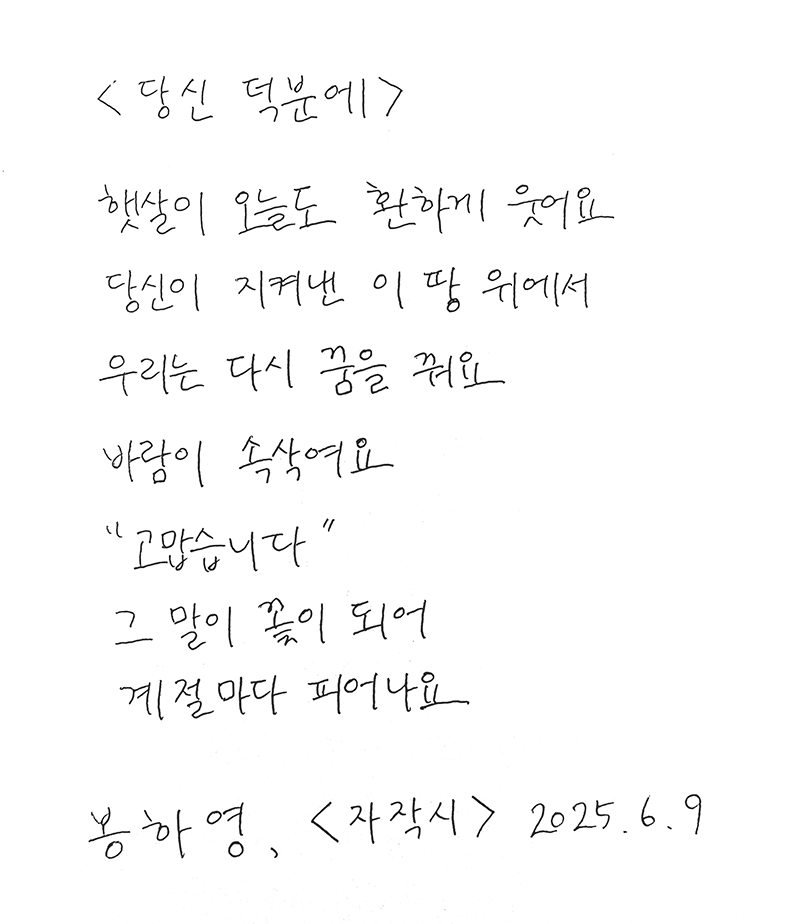 <당신 덕분에>
햇살이 오늘도 환하게 웃어요
당신이 지켜낸 이 땅 위에서
우리는 다시 꿈을 꿔요
바람이 속삭여요
"고맙습니다"
그 말이 꽃이 되어
계절마다 피어나요
봉하영, <자작시> 2025.6.9